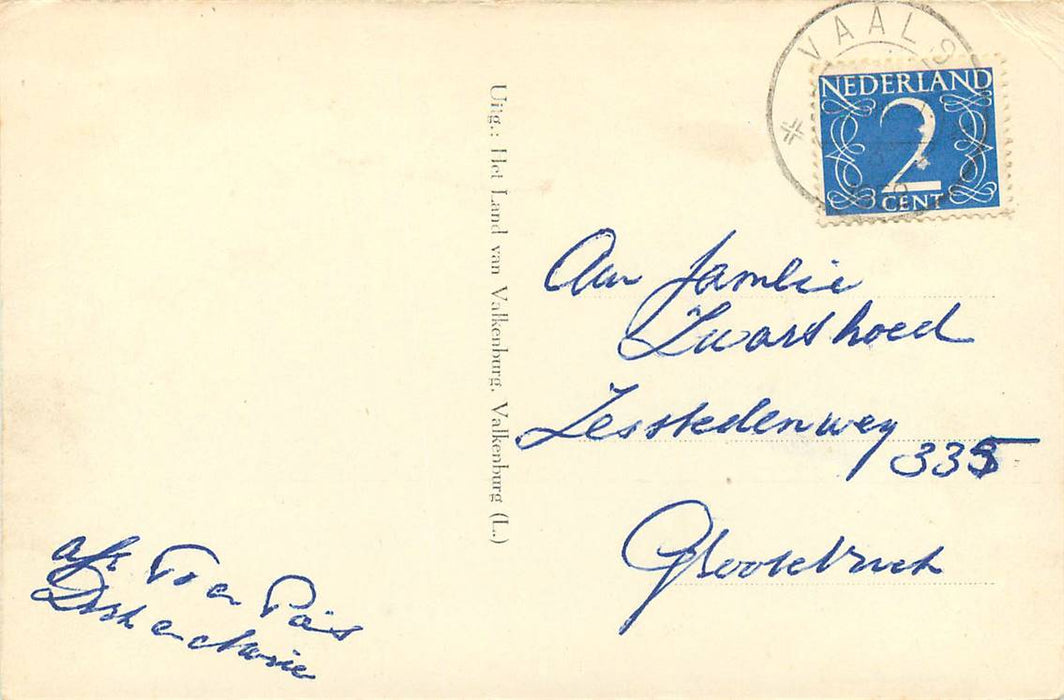 VAALS
NEDERLAND
2
CENT
Uitg.: Het Land van Valkenburg, Valkenburg (L.)
Aan familie
Zwarthoed
Zesstedenweg
335
Grootebroek
afz
en
en